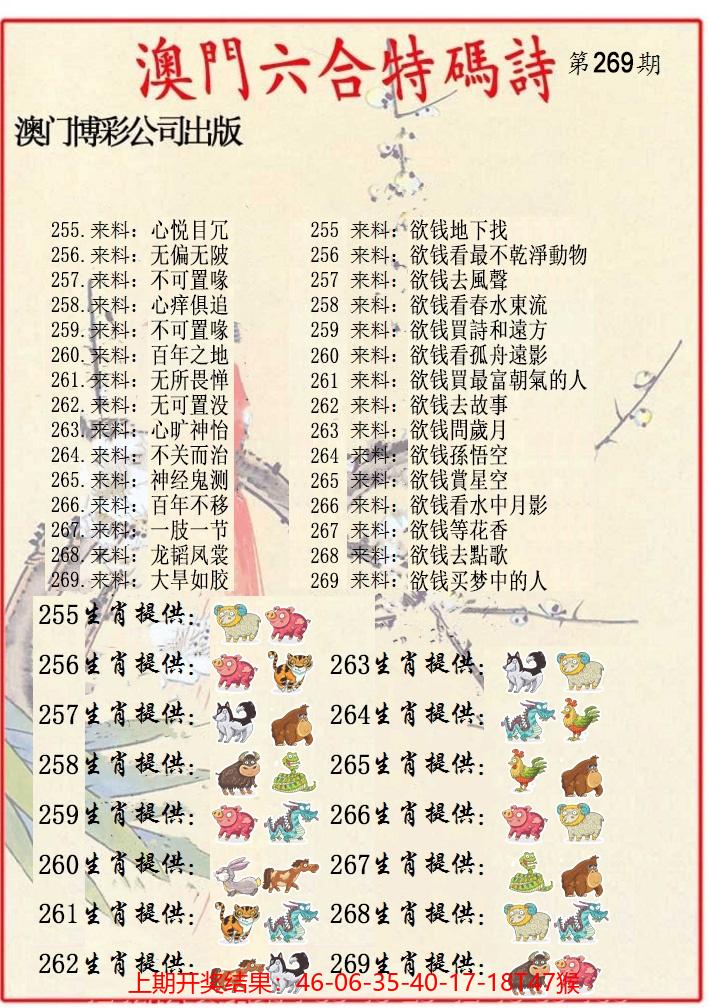 澳門六合特碼詩 第269期
澳门博彩公司出版
255.来料：心悦目冗
256.来料：无偏无陂
257.来料：不可置喙
258.来料：心痒俱追
259.来料：不可置喙
260.来料：百年之地
261.来料：无所畏惮
262.来料：无可置没
263.来料：心旷神怡
264.来料：不关而治
265.来料：神经鬼测
266.来料：百年不移
267.来料：一肢一节
268.来料：龙韬凤裳
269.来料：大旱如胶
255 来料：欲钱地下找
256 来料：欲钱看最不乾淨動物
257 来料：欲钱去風聲
258 来料：欲钱看春水東流
259 来料：欲钱買詩和遠方
260 来料：欲钱看孤舟遠影
261 来料：欲钱買最富朝氣的人
262 来料：欲钱去故事
263 来料：欲钱問歲月
264 来料：欲钱孫悟空
265 来料：欲钱賞星空
266 来料：欲钱看水中月影
267 来料：欲钱等花香
268 来料：欲钱去點歌
269 来料：欲钱买梦中的人
255生肖提供：
256生肖提供：
257生肖提供：
258生肖提供：
259生肖提供：
260生肖提供：
261生肖提供：
262生肖提供：
263生肖提供：
264生肖提供：
265生肖提供：
266生肖提供：
267生肖提供：
268生肖提供：
269生肖提供：
上期开奖结果：46-06-35-40-17-18T47猴